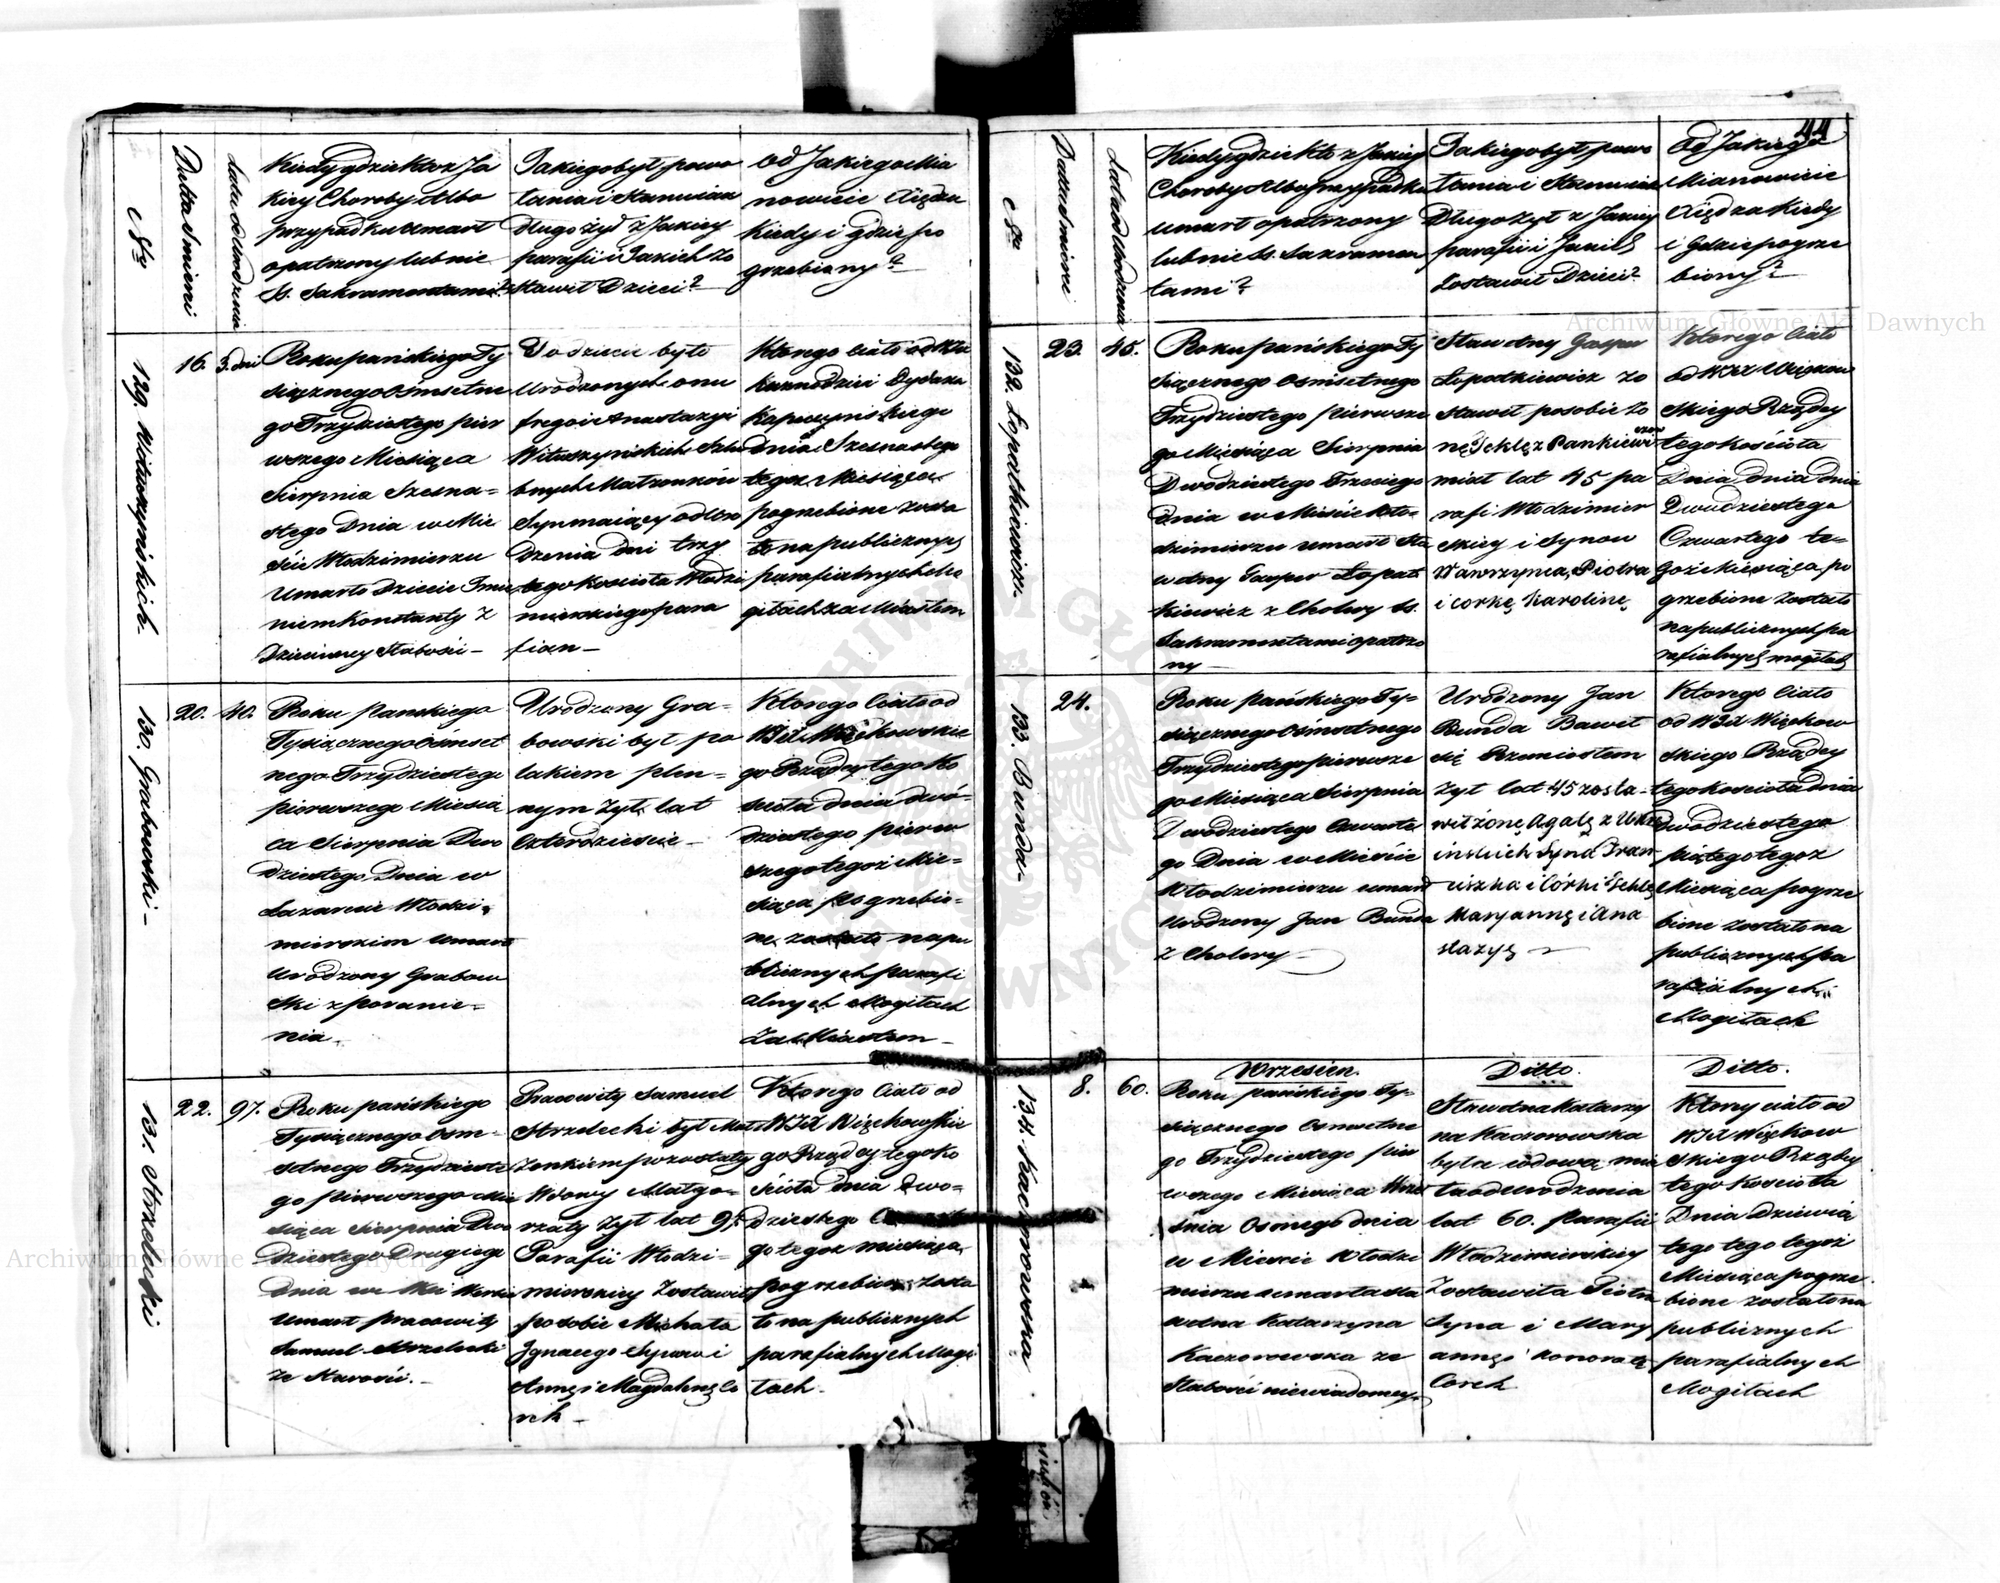 44
Nro
Datta śmierci
Lata od Urodzenia
Kiedy gdzie kto z Ja
kiey Choroby Albo
przypadku umarł
opatrzony lub nie
SS. Sakramentami?
Jakiego był powo
łania i Stanu iak
długo żył z Jakiey
parafii i Jakich Zo
stawił Dzieci?
Od Jakiego Mia
nowicie Xiędza
Kiedy i gdzie po
grzebiony?
129.
16.
3. dni
Roku pańskiego Ty
siącznego Ośmsetne
go Trzydziestego pier
wszego Miesiąca
Sierpnia Szesna=
stego Dnia w Mie
ście Włodzimierzu
Umarło Dziecie Imie
niem Konstanty z
Dziecinney Słabości —
To dziecie było
Urodzonych Onu
frego i Anastazyi
Wituszyńskich Szlu
bnych Małżonków
Syn maiący od Uro
dzenia dni trzy
tego Kościoła Włodzi
mierskiego para
fian —
Ktorego Ciało od Xa
Kaznodziei Dydaka
Kapucyńskiego
dnia Szesnastego
tegoż Miesiąca
pogrzebione zosta
ło na publicznych
parafialnych Mo
giłach za Miastem
130. Grabowski —
20.
40.
Roku Panskiego
Tysiącznego Ośmset
nego Trzydziestego
pierwszego Miesią
ca Sierpnia Dwu
dziestego Dnia w
Lazarecie Włodzi=
mierskim umarł
Urodzony Grabow
ski z poranie=
nia.
Urodzony Gra=
bowski był po
lakiem plen=
nym żył lat
Czterdzieście —
Ktorego Ciało od
WJX Więckowskie
go Rządcy tego Ko
ścioła dnia dwó=
dziestego pierw
szego tegoż Mie=
siąca pogrzebio=
ne zostało na pu
blicznych parafi
alnych Mogiłach
Za Miastem —
131. Strzelecki
22.
97.
Roku pańskiego
Tysiącznego Ośm=
setnego Trzydzieste
go pierwszego Mie
siąca Sierpnia Dwu
dziestego Drugiego
dnia we Wsi
Umarł pracowity
Samuel Strzelecki
ze Starości. —
Pracowity Samuel
Strzelecki był Mał
żonkiem pozostały
Wdowy Małgo=
rzaty żył lat 97
Parafii Włodzi=
mierskiey Zostawił
po sobie Michała
Ignacego Synow i
Annę i Magdalenę Co
rek —
Ktorego Ciało od
WJX Więckowskie
go Rządcy tego Ko
ścioła dnia Dwu=
dziestego
go tegoż miesiąca
pogrzebione zosta
ło na publicznych
parafialnych Mogi
łach.
Nro
Datta śmierci
Lata od Urodzenia
Kiedy gdzie kto z Jakiey
Choroby Albo przypadku
umarł opatrzony
lub nie SS. Sakramen
tami?
Jakiego był powo
łania i Stanu iak
Długo żył z Jakiey
parafii i Jakich
Zostawił Dzieci?
Od Jakiego
Mianowicie
Xiędza Kiedy
i Gdzie pogrze
biony?
132. Łopatkiewicz.
23.
45.
Roku pańskiego Ty
siącznego Ośmsetnego
Trzydziestego pierwsze
go Miesiąca Sierpnia
Dwudziestego Trzeciego
dnia w Mieście Wło=
dzimierzu umarł Sła
wetny Gasper Łopat
kiewicz z Cholery SS.
Sakramentami opatrzo
ny —
Sławetny Gasper
Łopatkiewicz Zo
stawił po sobie Żo
nę Teklę z Pankiewi
czow
miał lat 45 pa
rafi Włodzimier
skiey i Synow
Wawrzynca, Piotra
i corkę Karolinę
Ktorego Ciało
od WJX Więckow
skiego Rządcy
tego kościoła
Dnia dnia dnia
Dwudziestego
Czwartego te=
goż Miesiąca po
grzebione zostało
na publicznych pa
rafialnych mogiłach
133. Bunda —
24.
Roku pańskiego Ty=
siącznego Ośmsetnego
Trzydziestego pierwsze
go Miesiąca Sierpnia
Dwudziestego Czwarte
go Dnia w Mieście
Włodzimierzu umarł
Urodzony Jan Bunda
z Cholery —
Urodzony Jan
Bunda Bawił
się Rzemiosłem
żył lat 45 zosta=
wił żonę Agatę z
ińskich Syna Fran
ciszka i Córki Teklę
Maryannę i Ana
stazyę —
Ktorego Ciało
od WJX Więckow
skiego Rządcy
tego kościoła dnia
dwudziestego
piątego tegoż
Miesiąca pogrze
bione zostało na
publicznych pa
rafialnych
Mogiłach
134. Kaczorowska.
8.
60.
Wrzesien.
Roku pańskiego Ty=
siącznego Ośmsetne
go Trzydziestego pier
wszego Miesiąca Wrze
śnia Osmego dnia
w Miescie Włodzi
mierzu umarła Sła
wetna Katarzyna
Kaczorowska ze
Słabości niewiadomey
Ditto.
Sławetna Katarzy
na Kaczorowska
była wdową mia
ła od Urodzenia
lat 60. Parafii
Włodzimierskiey
Zostawiła Piotra
Syna i Mary
annę i Honoratę
Corek
Ditto.
Ktorey ciało od
WJX Więckow
skiego Rządcy
tego Kościoła
Dnia Dziewią
tego tego tegoż
Miesiąca pogrze
bione zostało na
publicznych
parafialnych
Mogiłach
Archiwum Główne Akt Dawnych
Archiwum Główne Akt Dawnych